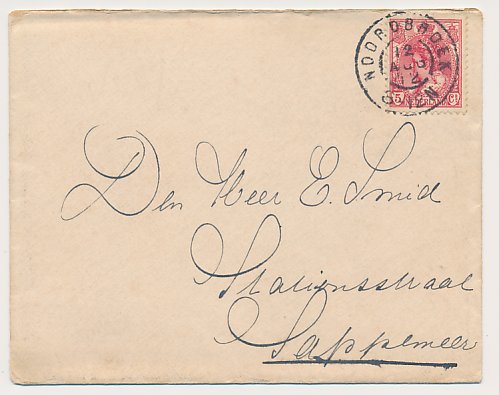 NOORDBROEK
12
AUG
12
5 Ct
Den Heer E. Smid
Stationsstraat
Sappemeer